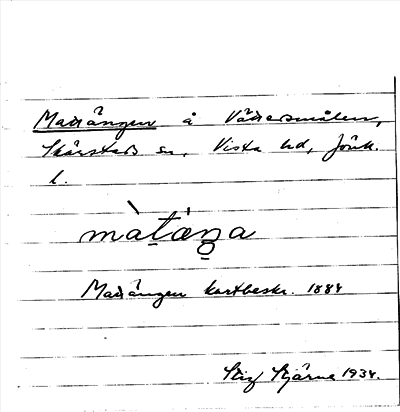 Madängen å Vädersmålen,
Skärstads sn, Vista hd, Jönk.
l.
màt́äṉa
Madängen kartbeskr. 1884
Stig Stjärne 1934.